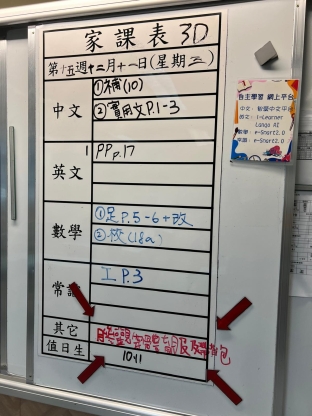 家課表 3D
第十五週十二月十一日(星期三)
中文
①補(10)
②實用文P.1-3
英文
1
PP p.17
數學
①足P.5-6+改
②校(18a)
常識
工 P.3
其它
值日生
10,11
自主學習 網上平台
中文:
英文: i-Learner
Lango AI
數學: e-Smart2.0
常識: e-Smart2.0